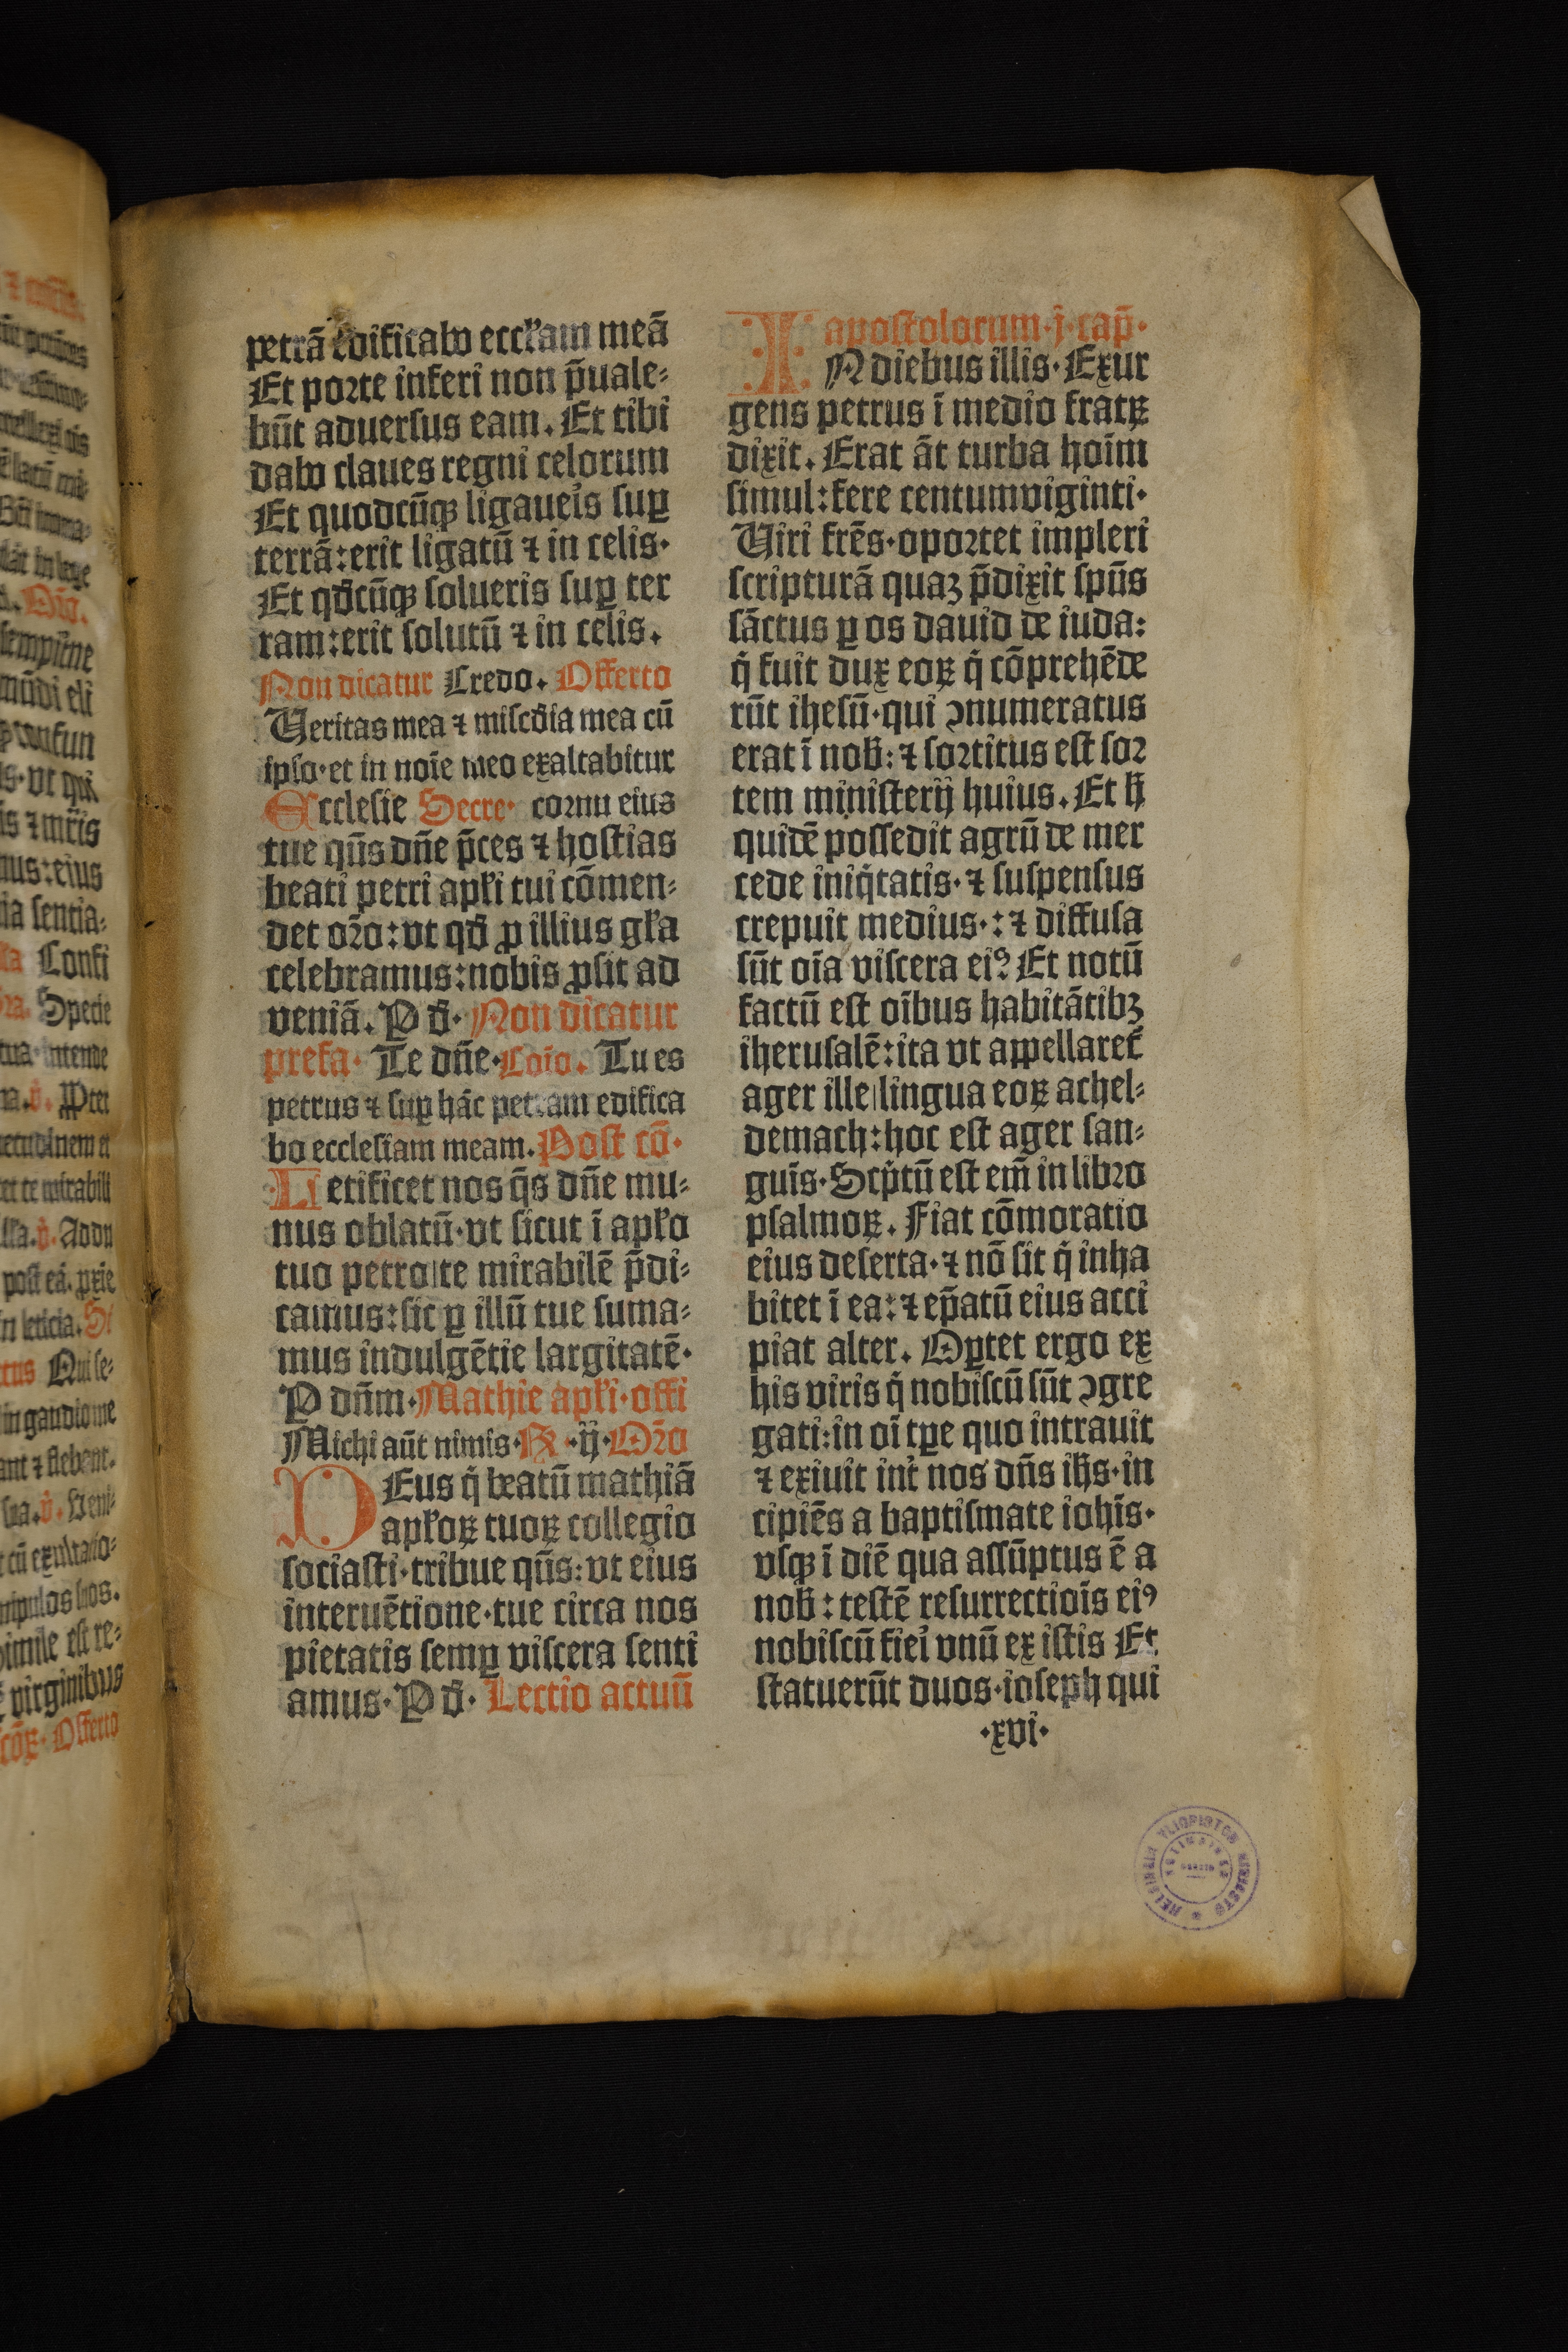 petrā edificabo eccl̄am meā
Et porte inferi non p̄uale⸗
būt aduersus eam. Et tibi
dabo claues regni celorum
Et quodcūqꝫ ligaueis suꝑ
terrā:erit ligatū ⁊ in celis·
Et qd̄cūqꝫ solueris suꝑ ter
ram:erit solutū ⁊ in celis.
Non dicatur Credo. Offerto
Ueritas mea ⁊ misc̄dia mea cū
ipso·et in noīe meo exaltabitur
Ecclesie Secre· cornu eius
tue qūs dn̄e p̄ces ⁊ hostias
beati petri apl̄i tui cōmen⸗
det or̄o:vt qd̄ ꝑ illius gl̄a
celebramus:nobis ꝓsit ad
veniā. P d̄· Non dicatur
prefa· Te dn̄e·Coīo. Tu es
petrus ⁊ suꝑ hāc petram edifica
bo ecclesiam meam. Post cō·
Letificet nos q̄s dn̄e mu⸗
nus oblatū·vt sicut ī apl̄o
tuo petro|te mirabilē p̄di⸗
camus:sic ꝑ illū tue suma⸗
mus indulgētie largitatē·
P dn̄m·Mathie apl̄i·offi
Michi aūt nimis·R·ij·Or̄o
DEus q̄ beatū mathiā
apl̄oꝝ tuoꝝ collegio
sociasti·tribue qūs:vt eius
interuētione·tue circa nos
pietatis semꝑ viscera senti
amus·P d̄· Lectio actuū
apostolorum·j·cap̄·
IN diebus illis·Exur
gens petrus ī medio fratꝝ
dixit. Erat āt turba hoīm
simul:fere centumviginti·
Uiri frēs·oportet impleri
scripturā quaꝫ p̄dixit spūs
sāctus ꝑ os dauid de iuda:
q̄ fuit dux eoꝝ q̄ cōprehēde
rūt ihesū·qui ꝯnumeratus
erat ī nob̄:⁊ sortitus est sor
tem ministerij huius. Et h̄
quidē possedit agrū de mer
cede iniq̄tatis·⁊ suspensus
crepuit medius·:⁊ diffusa
sūt oīa viscera eiꝰ Et notū
factū est oībus habitātibꝫ
iherusalē:ita vt appellaret̄
ager ille|lingua eoꝝ achel⸗
demach:hoc est ager san⸗
guīs·Scp̄tū est em̄ in libro
psalmoꝝ. Fiat cōmoratio
eius deserta·⁊ nō sit q̄ inha
bitet ī ea:⁊ ep̄atū eius acci
piat alter. Oꝑtet ergo ex
his viris q̄ nobiscū sūt ꝯgre
gati:in oī tꝑe quo intrauit
⁊ exiuit int̄ nos dn̄s ih̄s·in
cipiēs a baptismate ioh̄is·
vsqꝫ ī diē qua assūptus ē a
nob̄:testē resurrectiōis eiꝰ
nobiscū fiei vnū ex istis Et
statuerūt duos·ioseph qui
·xvi·
HELSINGIN YLIOPISTON KIRJASTO